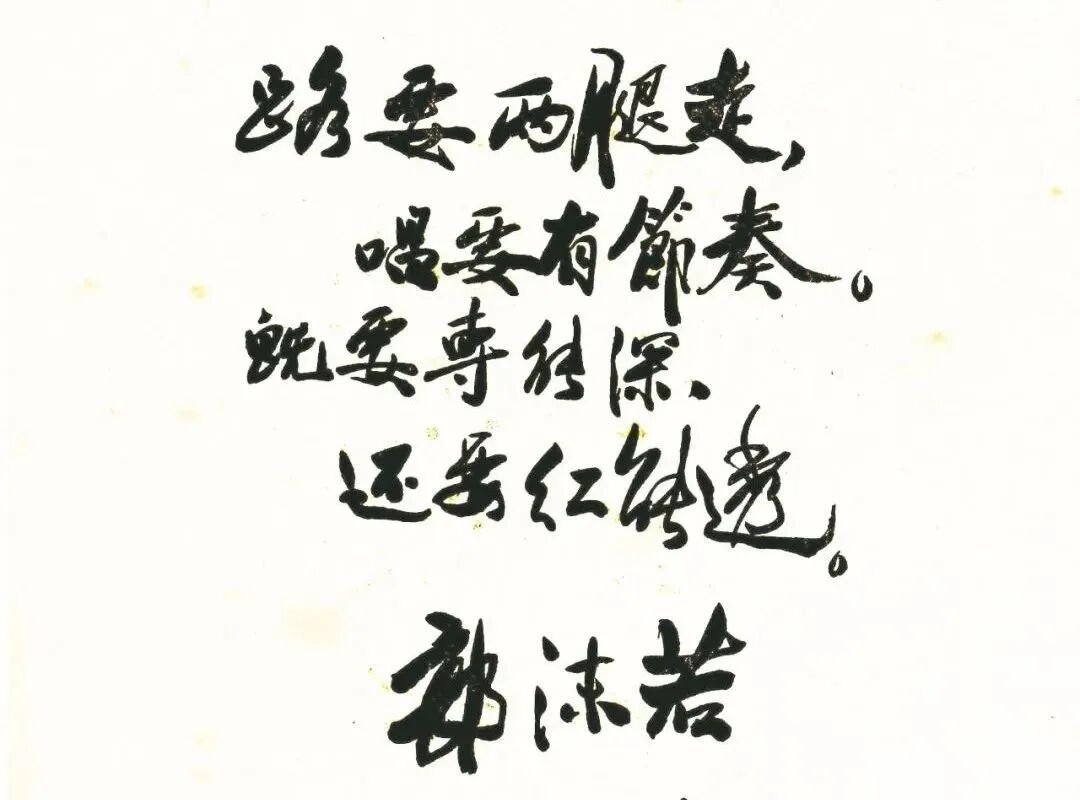 路要两腿走，
唱要有節奏。
既要專能深、
还要红能透。
郭沫若